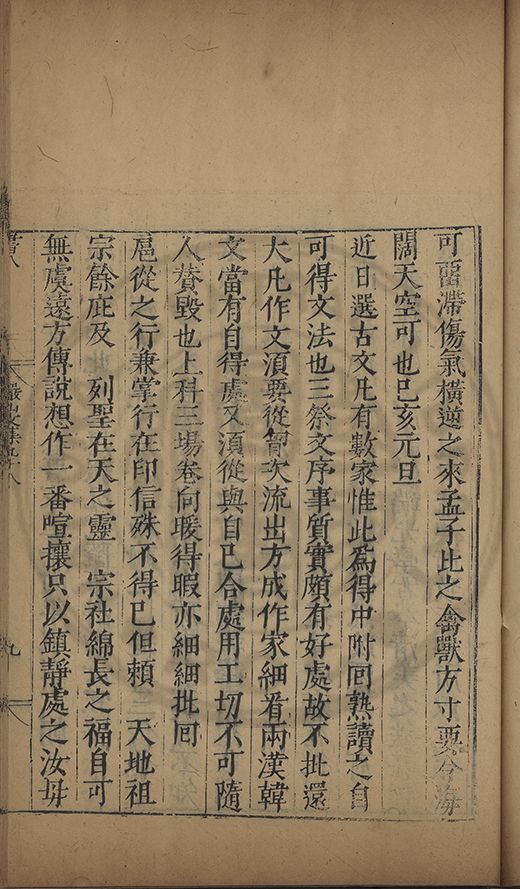 可畱滯傷氣橫逆之來孟子比之禽獸方寸要令海
闊天空可也已亥元旦
近日選古文凡有數家惟此爲得中附囘熟讀之自
可得文法也三祭文序事質實頗有好處故不批還
大凡作文湏要從胷次流出方成作家細看兩漢韓
文當有自得處又湏從與自已合處用工切不可隨
人賛毀也上科三場卷向暖得暇亦細細批囘
扈從之行兼掌行在印信殊不得已但賴 天地祖
宗餘庇及 列聖在天之靈 宗社綿長之福自可
無虞遠方傳說想作一番喧攘只以鎮靜處之汝毋
九